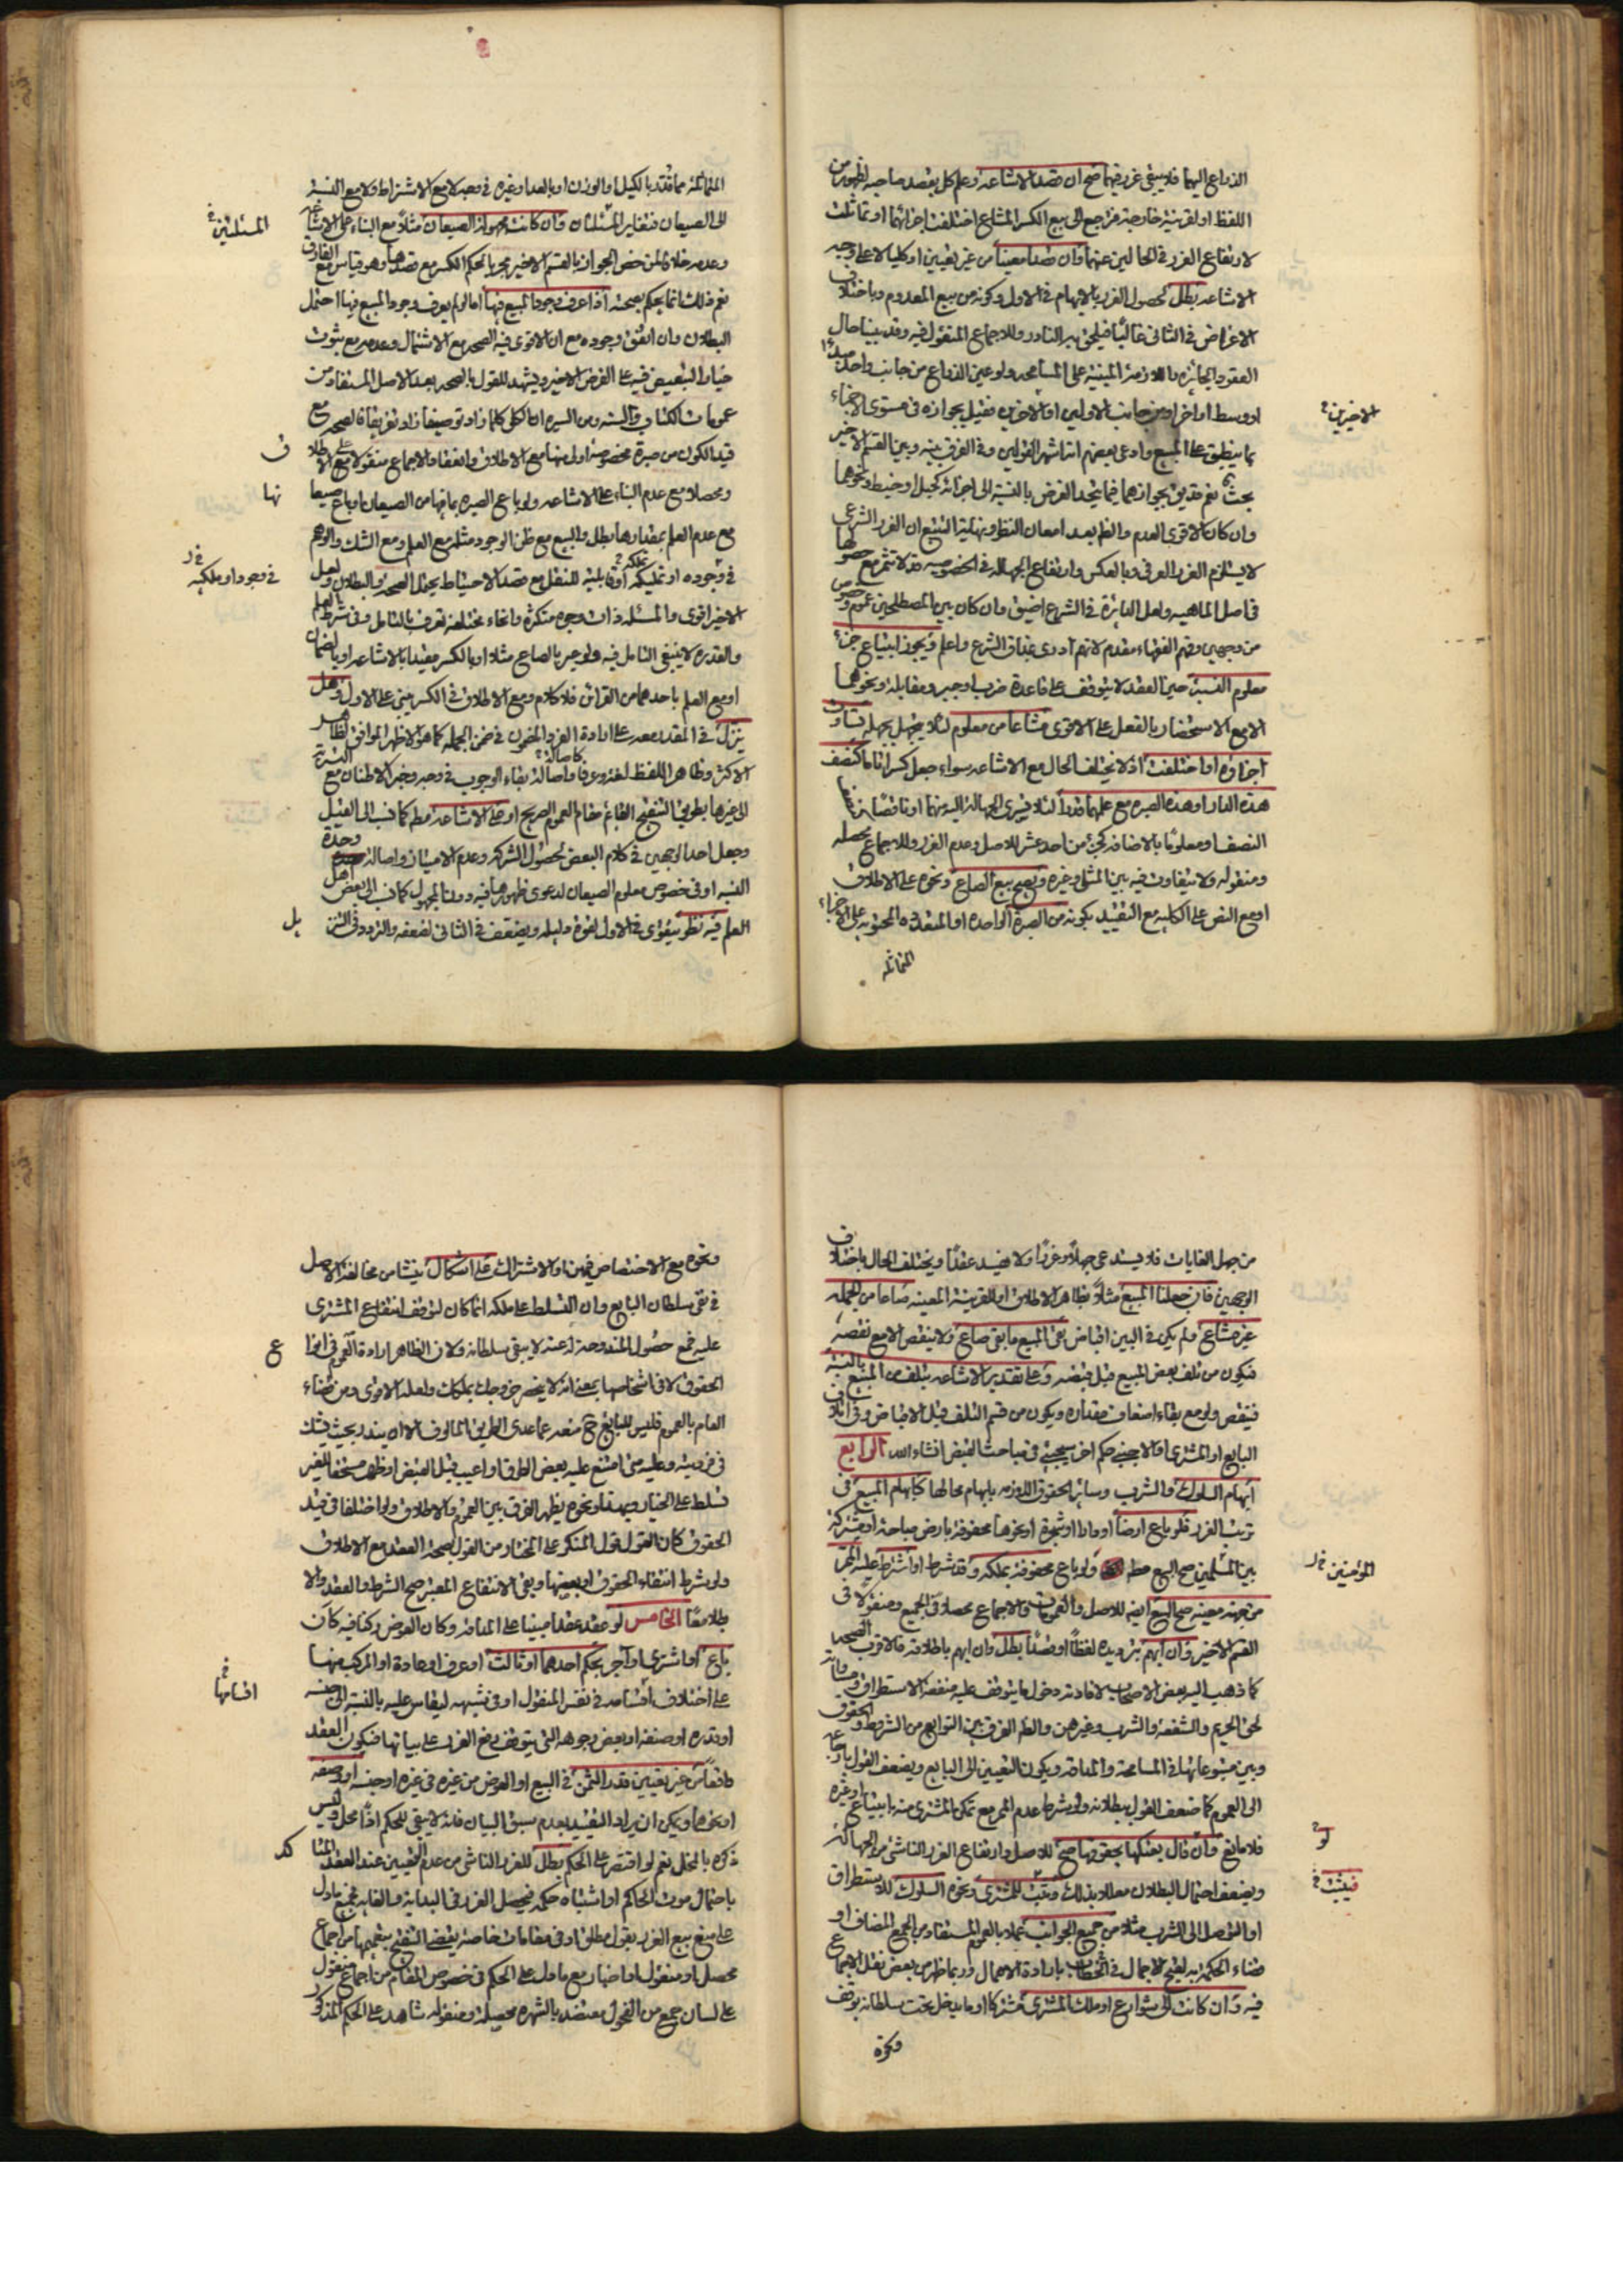 الدواعي اليها فلا يبقى غرر فيهما صح ان قصد الاشاعه وعلم كل بقصد صاحبه لظهور من
اللفظ او لقرينة خارجة فرجع الى بيع الكسر المشاع اختلفت اجزائها او تماثلت
لارتفاع الغرر في الحالين عنهما وان قصدا معينا من غير تعيين او كليا لا على وجه
الاشاعه بطل لحصول الغرر بالابهام في الاول وكونه من بيع المعدوم وباختلاف
الاغراض في الثاني غالبا فيلحق به النادر وللاجماع المنقول فيه وقد بينا حال
العقود الجائزه واللازمة المبنيه على المسامحه ولو عين الذراع من جانب واحد مبدءا
او وسطا او اخرا ومن جانب الاولين او الاخرين فقيل بجوازه في مستوى الاجزاء
الاخيرين
بما ينطبق على المبيع وادعى بعضهم انه اشهر القولين وفي الفرق بينه وبين القسم الاخير
بحث نعم قد يق بجوازهما فيما يتحد الغرض بالنسبة الى اجزائه كحبل او خيط ونحوهما
وان كان الاقوى العدم والظ بعد امعان النظر ونهاية التتبع ان الغرر الشرعي
لا يستلزم الغرر العرفي وبالعكس وارتفاع الجهاله في الخصوصيه قد لا تثمر مع حصولها
في اصل الماهيه ولعل الدائرة في الشرع اضيق وان كان بين المصطلحين عموم وخصوص
من وجهين وفهم الفقهاء مقدم لانهم ادرى بمذاق الشرع واعلم ويجوز ابتياع جزء
معلوم النسبة حين العقد لا يتوقف على قاعدة ضرب او جبر ومقابلة ونحوهما
الا مع الاستحضار بالفعل على الاقوى مشاعا من معلوم لئلا يجهل بجهله تساوت
اجزاؤه او اختلفت اذ لا يختلف الحال مع الاشاعه سواء جعل كسرا تاما كنصف
هذه الدار او هذه الصبره مع علمهما قدرا لئلا يسرى الجهالة اليه منهما او ناقصا
النصف او معلوما بالاضافه كجزء من احد عشر للاصل وعدم الغرر وللاجماع محصله
ومنقوله ولا يتفاوت فيه بين المثلي وغيره ويصح بيع الصاع ونحوه على الاطلاق
او مع النص على الكليه مع التقييد بكونه من الصبرة الواحده او المتعدده المحتويه على الاجزاء
المتماثله
المتماثله مما قدر بالكيل او الوزن او بالعد او غيره في وجه لا مع الاشتراط ولا مع النسبة
الى الصيعان فتغاير المسئلتان وان كانت مجهولة الصيعان مثلا مع البناء على الاشاعه
المسئلتين
وعدمه خلافا لمن خص الجواز بالقسم الاخير مجريا لحكم الكسر مع قصدها وهو قياس مع الفارق
نعم ذلك انما يحكم بصحته اذا عرف وجود المبيع فيها اما لو لم يعرف وجود المبيع فيها احتمل
البطلان وان اتفق وجوده مع ان الاقوى فيه الصحه مع الاشتمال وعدمه مع ثبوت
خيار التبعيض فيه على الفرض الاخير ويشهد للقول بالصحه بعد الاصل المستفاد من
عمومات الكتاب والسنه ومن السيره
قيد الكون من صبرة مخصوصة اولى منها مع الاطلاق وانعقاد الاجماع منقولا مع الاطلاق
ومحصلا مع عدم البناء على الاشاعه ولو باع الصبره بما فيها من الصيعان او باع صيعانها
مع عدم العلم بمقدارها بطل والبيع مع ظن الوجود مثله مع العلم ومع الشك والوهم
في وجوده او تملكه او قابليته للنقل مع قصد الاحتياط يحتمل الصحه والبطلان ولعل
في وجود او ملكيه
الاخير اقوى والمسئله ذات وجوه متكثرة وانحاء مختلفه تعرف بالتامل وفي شرط العلم
والقدره لا ينبغي التامل فيه ولو جبر بالصاع مثلا او بالكسر مقيدا بالاشاعه او بالضمان
او مع العلم باحدهما من القرائن فلا كلام ومع الاطلاق في الكسر يبنى على الاول وهل
ينزل في المقدر معه على ارادة الفرد المضمون في ضمن الجمله كما هو الاظهر الموافق لظاهر
الاكثر وظاهر اللفظ لغة وعرفا واصالة بقاء الوجوب في وجه وخبر الاطنان مع التسرية
الى غيرها بطريق التنقيح القائم مقام العموم الصريح او على الاشاعه مطه كما نسب الى القيل
وجعل احد الوجهين في كلام البعض لحصول الشركه وعدم الامتياز واصالة وحدة
النسبه او في خصوص معلوم الصيعان لدعوى ظهورها فيه دون المجهول كما نسب الى بعض اهل
العلم فيه نظر يقوى في الاول لقوة دليله ويضعف في الثاني لضعفه والتردد في الثمن بل
من جهل الغايات فلا يستدعي جهلا وغررا ولا يفسد عقدا ويختلف الحال باختلاف
الوجهين فان جعلنا المبيع مثلا بظاهر الاطلاق او القرينة المعينه صاعا من الجمله
غير مشاع ولم يكن في البين اقباض بقى المبيع ما بقى صاع ولا ينقص الا مع نقصه
فيكون من تلف بعض المبيع قبل قبضه وعلى تقدير الاشاعه يتلف من المبيع بالنسبة
فينقص ولو مع بقاء اضعاف مقداره ويكون من قسم التلف قبل الاقباض وفي اتلاف
البايع او المشترى او الاجنبي حكم اخر سيجيئ في مباحث القبض انشاء الله الرابع
ابهام السلوك والشرب وسائر الحقوق اللازمه بابهام محالها كابهام المبيع في
ترتب الغرر فلو باع ارضا او دارا او شجرة او نحوها محفوفة بارض مباحة او مشتركة
بين المسلمين صح البيع مطه ولو باع محفوفة بملكه وقد شرط او اشترط عليه الممر
المؤمنين خ ر
من جهة معينه صح البيع ايضه للاصل والعمومات والاجماع محصلا في الجميع ومنقولا في
القسم الاخير وان ابهم بترديده لفظا او قصدا بطل وان ابهم باطلاقه فالاقرب الصحه
كما ذهب اليه بعض الاصحاب لافادته دخول ما يتوقف عليه منفعة الاستطراق
لحق الحريم والشفعة والشرب وغيرهن والظ الفرق بين التوابع من الشروط والحقوق
وبين متبوعاتها في المسامحة والمداقه ويكون التعيين الى البايع ويضعف القول بارجاعه
الى العموم كما ضعف القول ببطلانه ولو شرط عدم الممر مع تمكن المشترى منه بابتياع او غيره
فلا مانع وان قال بعتكها بحقوقها صح للاصل وارتفاع الغرر الناشئ من الجهاله
ويضعف احتمال البطلان معللا بذلك وثبت للمشترى ونحوه السلوك للاستطراق
فيثبت
او التوصل الى الشرب مثلا من جميع الجوانب عملا بالعموم المستفاد من الجمع المضاف او
قضاء الحكمة به لقبح الاجمال في الخطاب بارادة الاهمال وربما ظهر من بعض نقل الاجماع
فيه وان كانت الى شوارع او ملك المشترى مشتركا او ما يدخل تحت سلطانه بوقف
ونحوه
ونحوه مع الاختصاص فيهن او الاشتراك على اشكال ينشا من مخالفة الاصل
في نفي سلطان البايع وان التسلط على ملكه انما كان لتوقف انتفاع المشترى
عليه فمع حصول المندوحة له عنه لا يبقى سلطانه ولان الظاهر ارادة العموم في انواع
الحقوق لا في اشخاصها بمعنى انه لا ينحصر خروجك بملكك ولعله الاقوى ومن قضاء
العام بالعموم فليس للبايع ح منعه عما عدى الطريق المالوف الا ان يندر بحيث يشك
في فرديته وعليه متى امتنع عليه بعض الطرق او اعيب قبل القبض او ظهر مستحقا للغير
تسلط على الخيار وبهذا ونحوه يظهر الفرق بين العموم والاطلاق ولو اختلفا في قيد
الحقوق كان القول قول المنكر على المختار من القول بصحة العقد مع الاطلاق
ولو شرط انتفاء الحقوق او بعضها وبقى الانتفاع المعتبر صح الشرط والعقد والا
بطلا معا الخامس لو عقد عقدا مبنيا على المداقه وكان العوض ركنا فيه كان
باع او اشترى او آجر بحكم احدهما او ثالث او عرف او عادة او المركب منها
اقسامها
على اختلاف اقسامه في نفس المنقول او في شبهه ليقاس عليه بالنسبة الى جنسه
او قدره او صنفه او بعض وجوهه التي يتوقف رفع الغرر على بيانها فيكون العقد
واقعا من غير تعيين قدر الثمن في البيع او العوض من غيره في غيره او جنسه او وصفه
او نحوها ويمكن ان يراد التقييد بعدم سبق البيان فلا يبقى للحكم اذا محل وليس
ذكره بالمخل نعم لو اقتصر على الحكم بطل للغرر الناشى من عدم التعيين عند العقد
باحتمال موت الحاكم او اشتباه حكمه فيحصل الغرر في البداية والغايه فجميع ما دل
على منع بيع الغرر بقول مطلق او في مقامات خاصة يقضى التنقيح بتعميمها من اجماع
محصل او منقول او اخبار مع ما دل على الحكم في خصوص المقام من اجماع منقول
على لسان جمع من الفحول معتضد بالشهره محصلة ومنقوله شاهد على الحكم المذكور